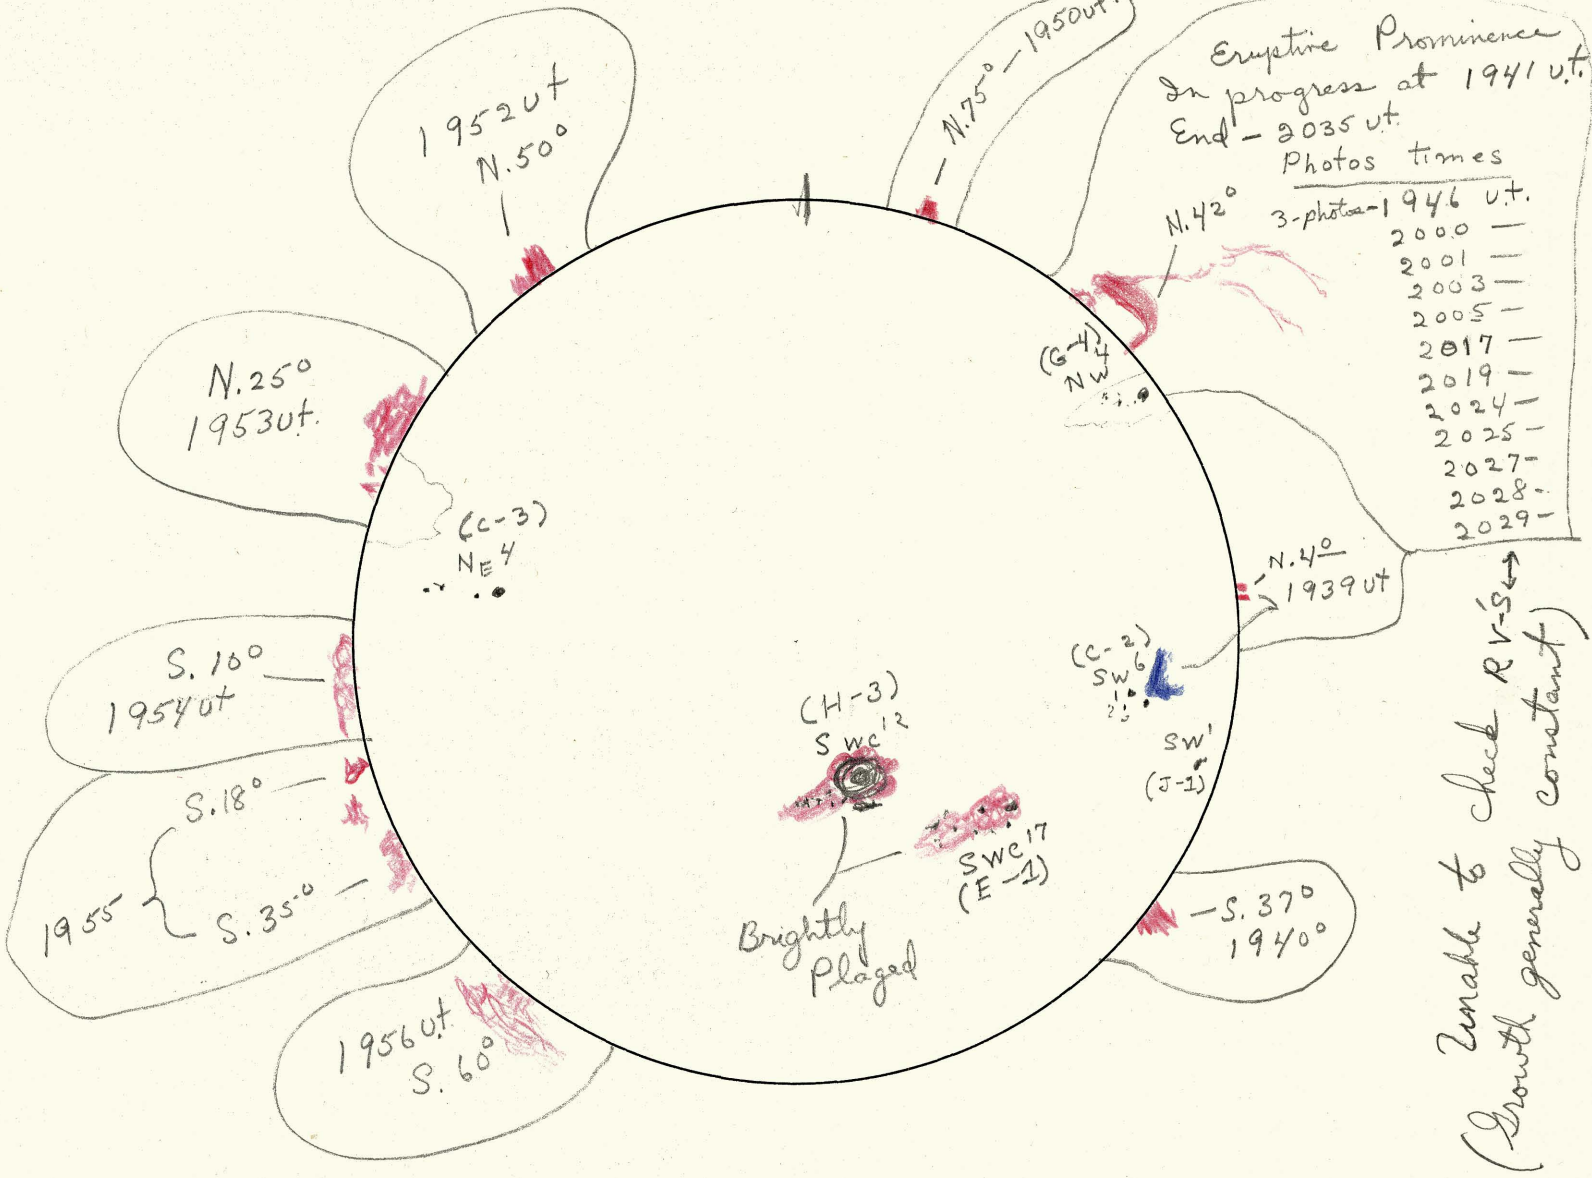 1952 ut
N.50°
N.75° - 1950 ut.
Eruptive Prominence
In progress at 1941 u.t.
End - 2035 ut.
Photos times
3-photos-1946 u.t.
2000 —
2001 —
2003 —
2005 —
2017 —
2019 —
2024 —
2025 —
2027 -
2028 -
2029 -
N.42°
(G-4)
NW 4
N.25°
1953 ut.
(C-3)
NE 4
N.4°
1939 ut
S.10°
1954 ut
(C-2)
SW 6
(H-3)
SWC 12
SW 1
(J-1)
S.18°
1955
S.35°
SWC 17
(E-1)
Brightly
Plaged
S.37°
1940°
1956 ut.
S.60°
Unable to check RV'S
(Growth generally constant)